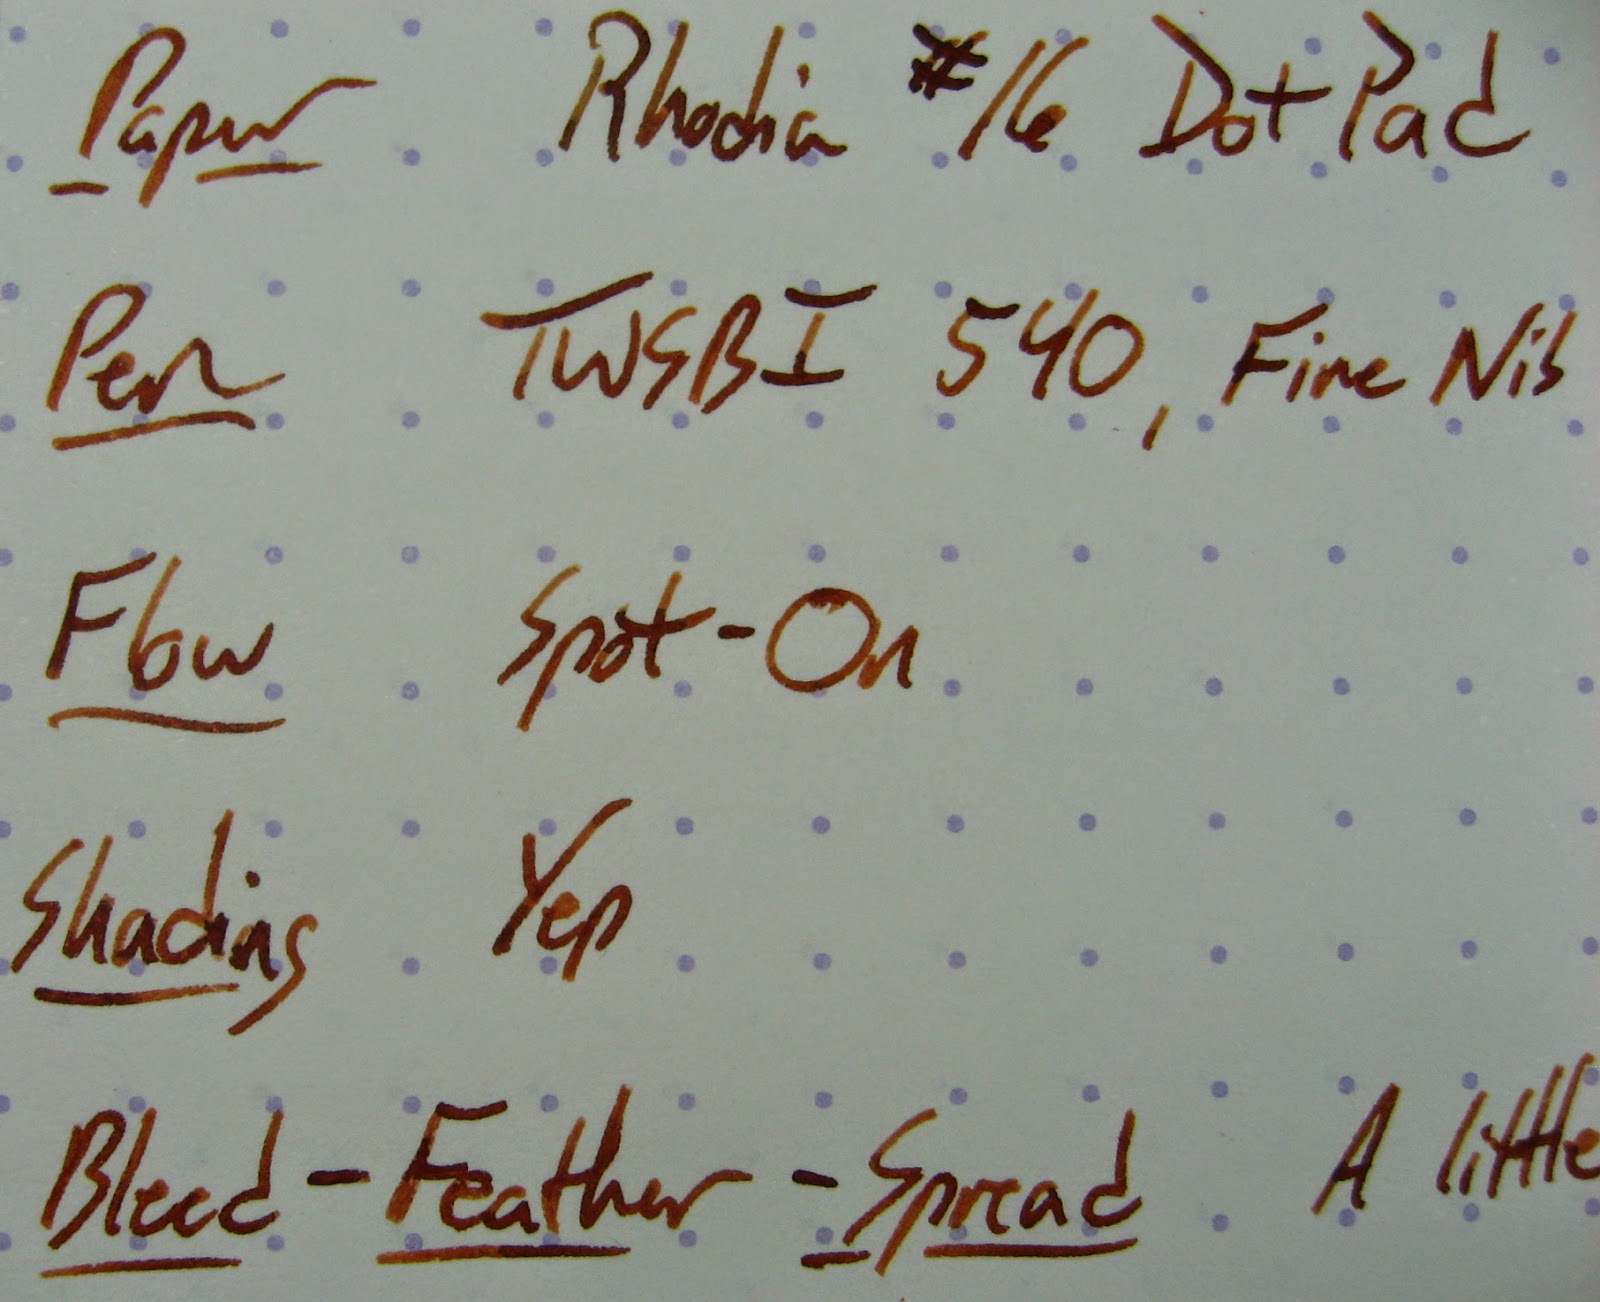 Paper Rhodia #16 Dot Pad
Pen TWSBI 540, Fine Nib
Flow Spot-On
Shading Yep
Bleed - Feather - Spread A little